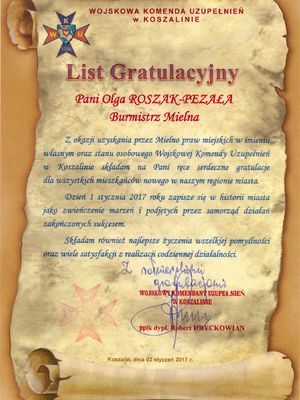 WOJSKOWA KOMENDA UZUPEŁNIEŃ
w KOSZALINIE
W K U
List Gratulacyjny
Pani Olga ROSZAK-PEZAŁA
Burmistrz Mielna
Z okazji uzyskania przez Mielno praw miejskich w imieniu
własnym oraz stanu osobowego Wojskowej Komendy Uzupełnień
w Koszalinie składam na Pani ręce serdeczne gratulacje
dla wszystkich mieszkańców nowego w naszym regionie miasta.
Dzień 1 stycznia 2017 roku zapisze się w historii miasta
jako zwieńczenie marzeń i podjętych przez samorząd działań
zakończonych sukcesem.
Składam również najlepsze życzenia wszelkiej pomyślności
oraz wiele satysfakcji z realizacji codziennej działalności.
Z
gratulacjami
WOJSKOWY KOMENDANT UZUPEŁNIEŃ
W KOSZALINIE
ppłk dypl. Robert HRYCKOWIAN
Koszalin, dnia 03 styczeń 2017 r.